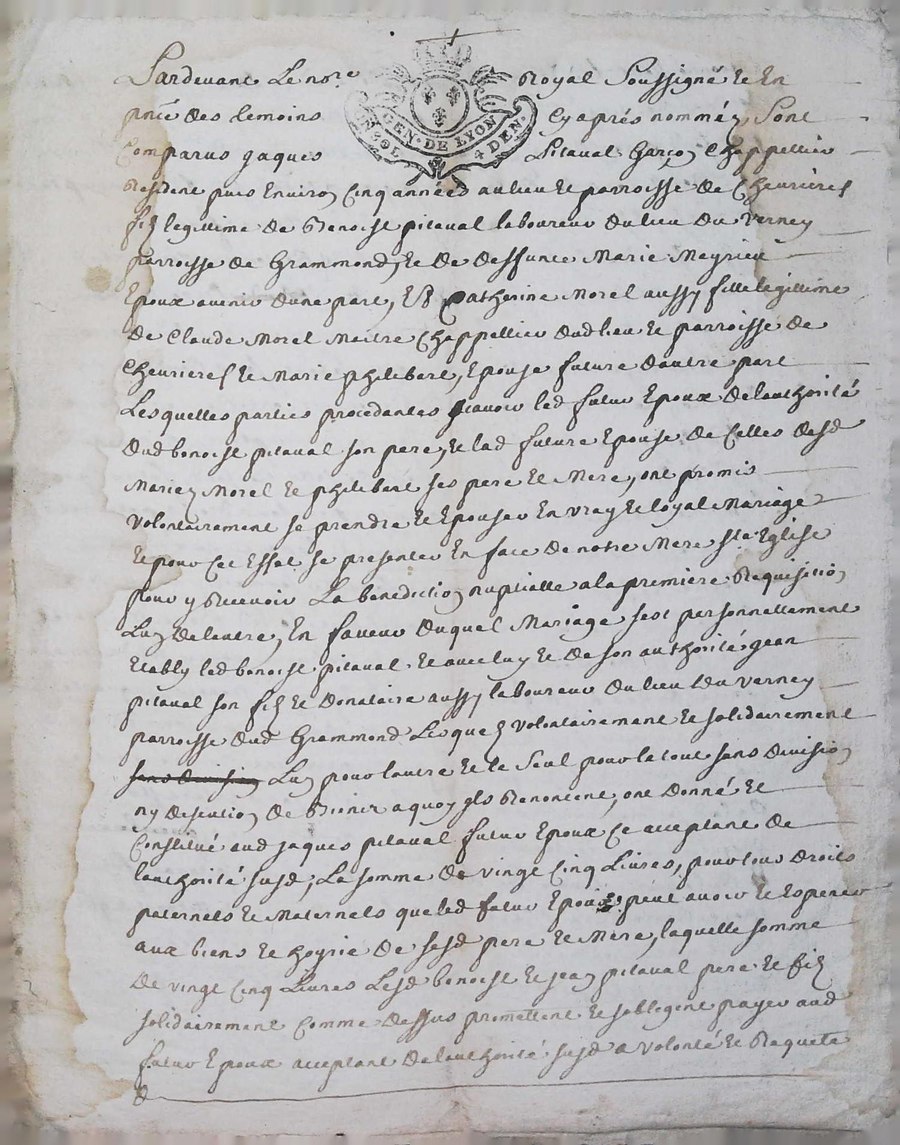 Pardevant Le no.re Royal Soussigné Et En
pn̄ce des temoins Cyaprés nommé, Sont
GEN. DE LYON
4 DEN.
Comparus jaques Pitaval Garçon Chappellier
Resident puis Environ Cinq années au lieu Et parroisse de Chevrieres
fils legittime de Benoist pitaval laboureur du lieu du Verney
parroisse de Grammond, Et de deffunte Marie Meyrieu
Epoux avenir dune part, Et Catherine Morel aussy fille legittime
de Claude Morel Maitre Chappellier dud lieu Et parroisse de
Chevrieres Et Marie philibert, Epouse future dautre part
Lesquelles parties procedantes scavoir led futur Epoux de lauthorité
dud benoist pitaval son pere, Et lad future Epouse de Celles desd
Mariez Morel Et philibert ses pere Et Mere, ont promis
volontairement se prendre Et Epouser En vray Et loyal Mariage
Et pour Cet Effet se presenter En face de notre Mere s.te Eglise
pour y Recevoir La benediction nuptialle a la premiere Requisition
Lun de lautre, En faveur duquel Mariage sest personnellement
Etably led benoist pitaval Et avec luy Et de son authorité jean
pitaval son fils Et donataire aussy laboureur du lieu du Verney
parroisse dud Grammond Lesquels volontairement Et solidairement
sans division Lun pour lautre Et le Seul pour le tout sans division
ny discution de Biens a quoy ils Renoncent, ont donné Et
Constitué aud jaques pitaval futur Epoux Ce acceptant de
lauthorité susd, La somme de vingt Cinq Livres, pour tous droits
paternels Et Maternels que led futur Epoux peut avoir Et Esperer
aux biens Et hoyrie de sesd pere Et Mere, laquelle somme
de vingt Cinq Livres Lesd benoist Et jean pitaval pere Et fils
solidairement Comme dessus promettent Et soblegent payer aud
futur Epoux acceptant de lauthorité susd a volonté Et Requete